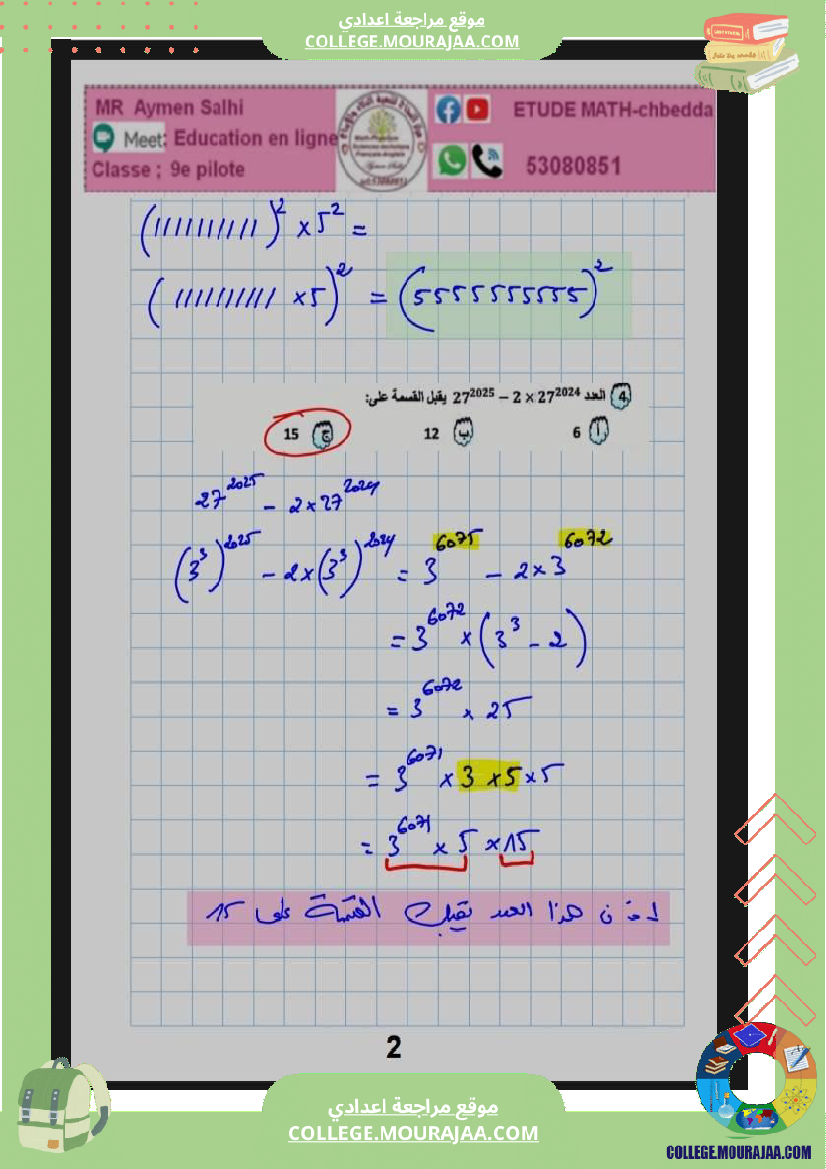 موقع مراجعة اعدادي
COLLEGE.MOURAJAA.COM
MR Aymen Salhi
Meet: Education en ligne
Classe ; 9e pilote
ETUDE MATH-chbedda
53080851
(1111111111)² × 5² =
(1111111111 × 5)² = (5555555555)²
4 العدد 27²⁰²⁵ − 2 × 27²⁰²⁴ يقبل القسمة على:
أ 6 ب 12 ج 15
27²⁰²⁵ − 2 × 27²⁰²⁴
(3³)²⁰²⁵ − 2 × (3³)²⁰²⁴ = 3⁶⁰⁷⁵ − 2 × 3⁶⁰⁷²
= 3⁶⁰⁷² × (3³ − 2)
= 3⁶⁰⁷² × 25
= 3⁶⁰⁷¹ × 3 × 5 × 5
= 3⁶⁰⁷¹ × 5 × 15
هذا العدد يقبل القسمة على 15
2
موقع مراجعة اعدادي
COLLEGE.MOURAJAA.COM
COLLEGE.MOURAJAA.COM